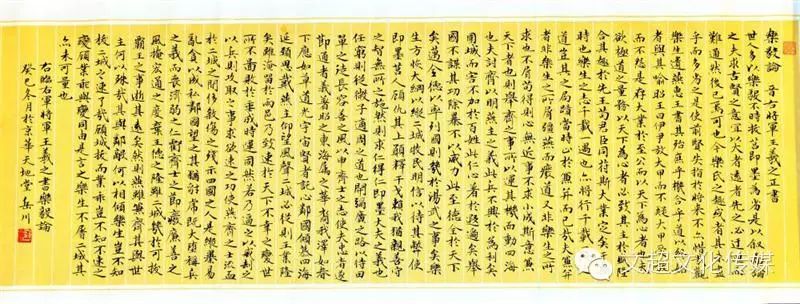 樂毅論 晉右將軍王羲之正書
世人多以樂毅不時拔莒即墨為劣是以叙而論
之夫求古賢之意宜以大者遠者先之必迂迴而
難通然後已焉可也今樂氏之趣或者其未盡
乎而多劣之是使前賢失指於將來不亦惜哉觀
樂生遺燕惠王書其殆庶乎機合乎道以終始
者與其喻昭王曰伊尹放大甲而不疑大甲受放
而不怨是存大業於至公而以天下為心者也夫
欲極道之量務以天下為心者必致其主於盛隆
合其趣於先王苟君臣同符斯大業定矣于斯
時也樂生之志千載一遇也亦將行千載一隆之
道豈其局蹟當時止於兼并而已哉夫兼并
者非樂生之所屑彊燕而廢道又非樂生之所
求也不屑苟得則心無近事不求小成斯意兼
天下者也則舉齊之事所以運其機而動四海
也夫討齊以明燕主之義此兵不興於為利矣圍
城而害不加於百姓此仁心著於遐邇矣舉
國不謀其功除暴不以威力此至德令於天下
矣邁全德以率列國則幾於湯武之事矣樂
生方恢大綱以縱二城收民明信以待其弊使
即墨莒人顧仇其上願釋干戈賴我猶親善守
之智無所之施然則求仁得仁即墨大夫之義也
任窮則從微子適周之道也開彌廣之路以待田
單之徒長容善之風以申齊士之志使夫忠者遂
節通者義著昭之東海屬之華裔我澤如春
下應如草道光宇宙賢者託心鄰國傾慕四海
延頸思戴燕主仰望風聲二城必從則王業隆
矣雖淹留於兩邑乃致速於天下不幸之變世
所不圖敗於垂成時運固然若乃逼之以威劫之
以兵則攻取之事求欲速之功使燕齊之士流血
於二城之間侈殺傷之殘示四國之人是縱暴易
亂貪以成私鄰國望之其猶豺虎既大墮稱兵
之義而喪濟弱之仁虧齊士之節廢廉善之
風掩宏通之度棄王德之隆雖二城幾於可拔
霸王之事逝其遠矣然則燕雖兼齊其與世
主何以殊哉其與鄰敵何以相傾樂生豈不知
拔二城之速了哉顧城拔而業乖豈不知不速之
變顧業乖與變同由是言之樂生不屠二城其
亦未可量也
右臨右軍將軍王羲之書樂毅論
癸巳冬月於京華天地堂岳川
文超文化传媒